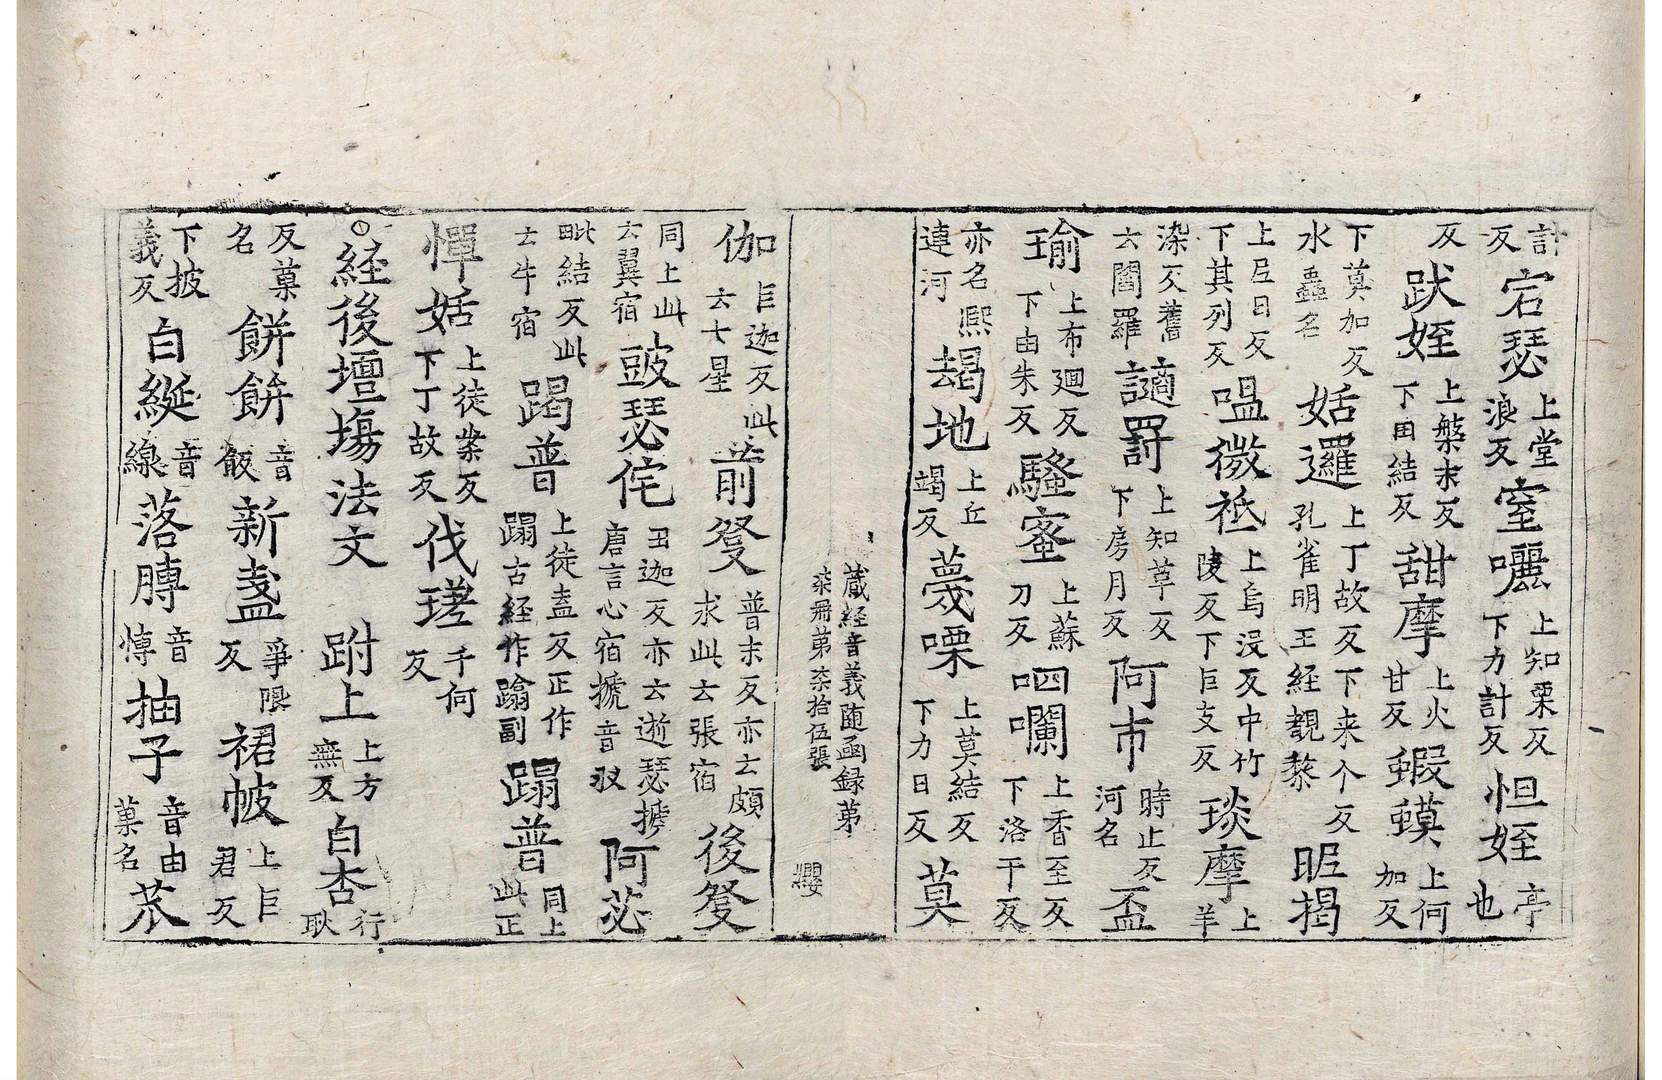 計反宕瑟上堂浪反窒囇上知栗反下力計反怛姪亭也
反跋姪上盤末反下田結反甜摩上火甘反蝦蟆上何加反
下莫加反水蟲名姡邏上丁故反下来个反孔雀明王經覩黎昵揭
上尼日反下其列反嗢微祗上烏沒反中竹陵反下巨支反琰摩上羊
染反舊云閻羅謫罸上知革反下房月反阿市時止反河名盃
瑜上布廻反下由朱反騷蜜上蘇刀反呬嚂上香至反下洛干反
亦名熙連河朅地上丘竭反蔑㗚上莫結反下力日反莫
藏經音義随函録苐柒冊苐柒拾伍張 纓
伽巨迦反此云七星前發普末反亦云頗求此云張宿後發
同上此云翼宿豉瑟侘丑迦反亦云逝瑟搋唐言心宿搋音㢮阿苾
毗結反此云牛宿蹋普上徒盍反正作蹋古経作蹹副蹋普同上此正
憚姤上徒案反下丁故反伐瑳千何反
○経後壇塲法文 跗上上方無反白杏行耿
反菓名餅餅音飯新盞爭限反裙帔上巨君反
下披義反白綖音線落膊音博抽子音由菓名苶